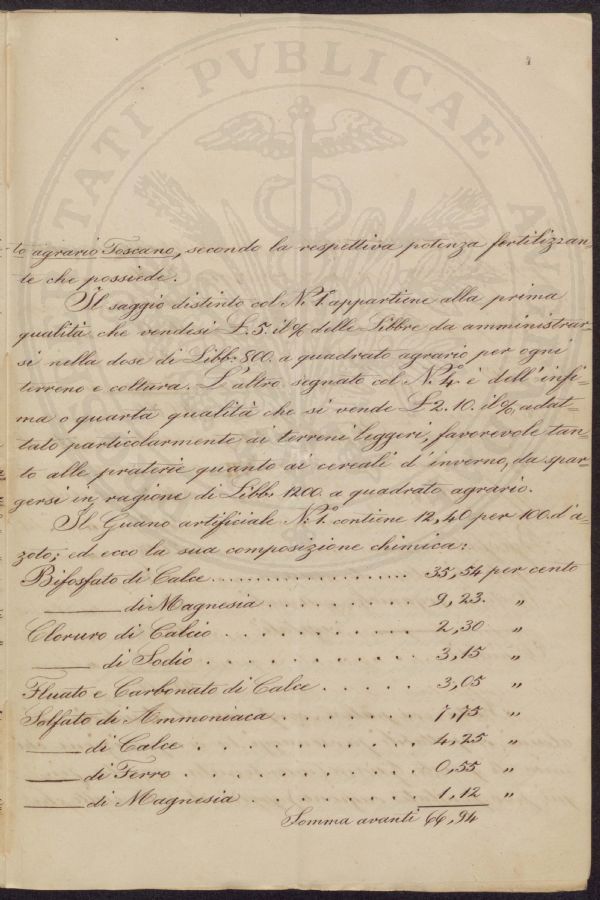 PVBLICAE
-to agrario Toscano, secondo la respettiva potenza fertilizzan-
te che possiede.
Il saggio distinto col N.° 1.° appartiene alla prima
qualità che vendesi £. 5. il % delle Libbre da amministrar-
si nella dose di Libb.e 800. a quadrato agrario per ogni
terreno e coltura. L'altro segnato col N.° 4.° è dell'infi-
ma o quarta qualità che si vende £ 2.10. il %, adat-
tato particolarmente ai terreni leggeri, favorevole tan-
to alle praterie quanto ai cereali d'inverno, da spar-
gersi in ragione di Libb.e 1200. a quadrato agrario.
Il Guano artificiale N.° 1.° contiene 12,40 per 100. d'a-
zoto; ed ecco la sua composizione chimica:
Bifosfato di Calce .................... 35,54 per cento
——— di Magnesia ........ 9,23. "
Cloruro di Calcio .......... 2,30 "
——— di Sodio ........... 3,15 "
Fluato e Carbonato di Calce ...... 3,05 "
Solfato di Ammoniaca ........ 7,75 "
——— di Calce ........... 4,25 "
——— di Ferro ............ 0,55 "
——— di Magnesia ......... 1,12 "
Somma avanti 66,94